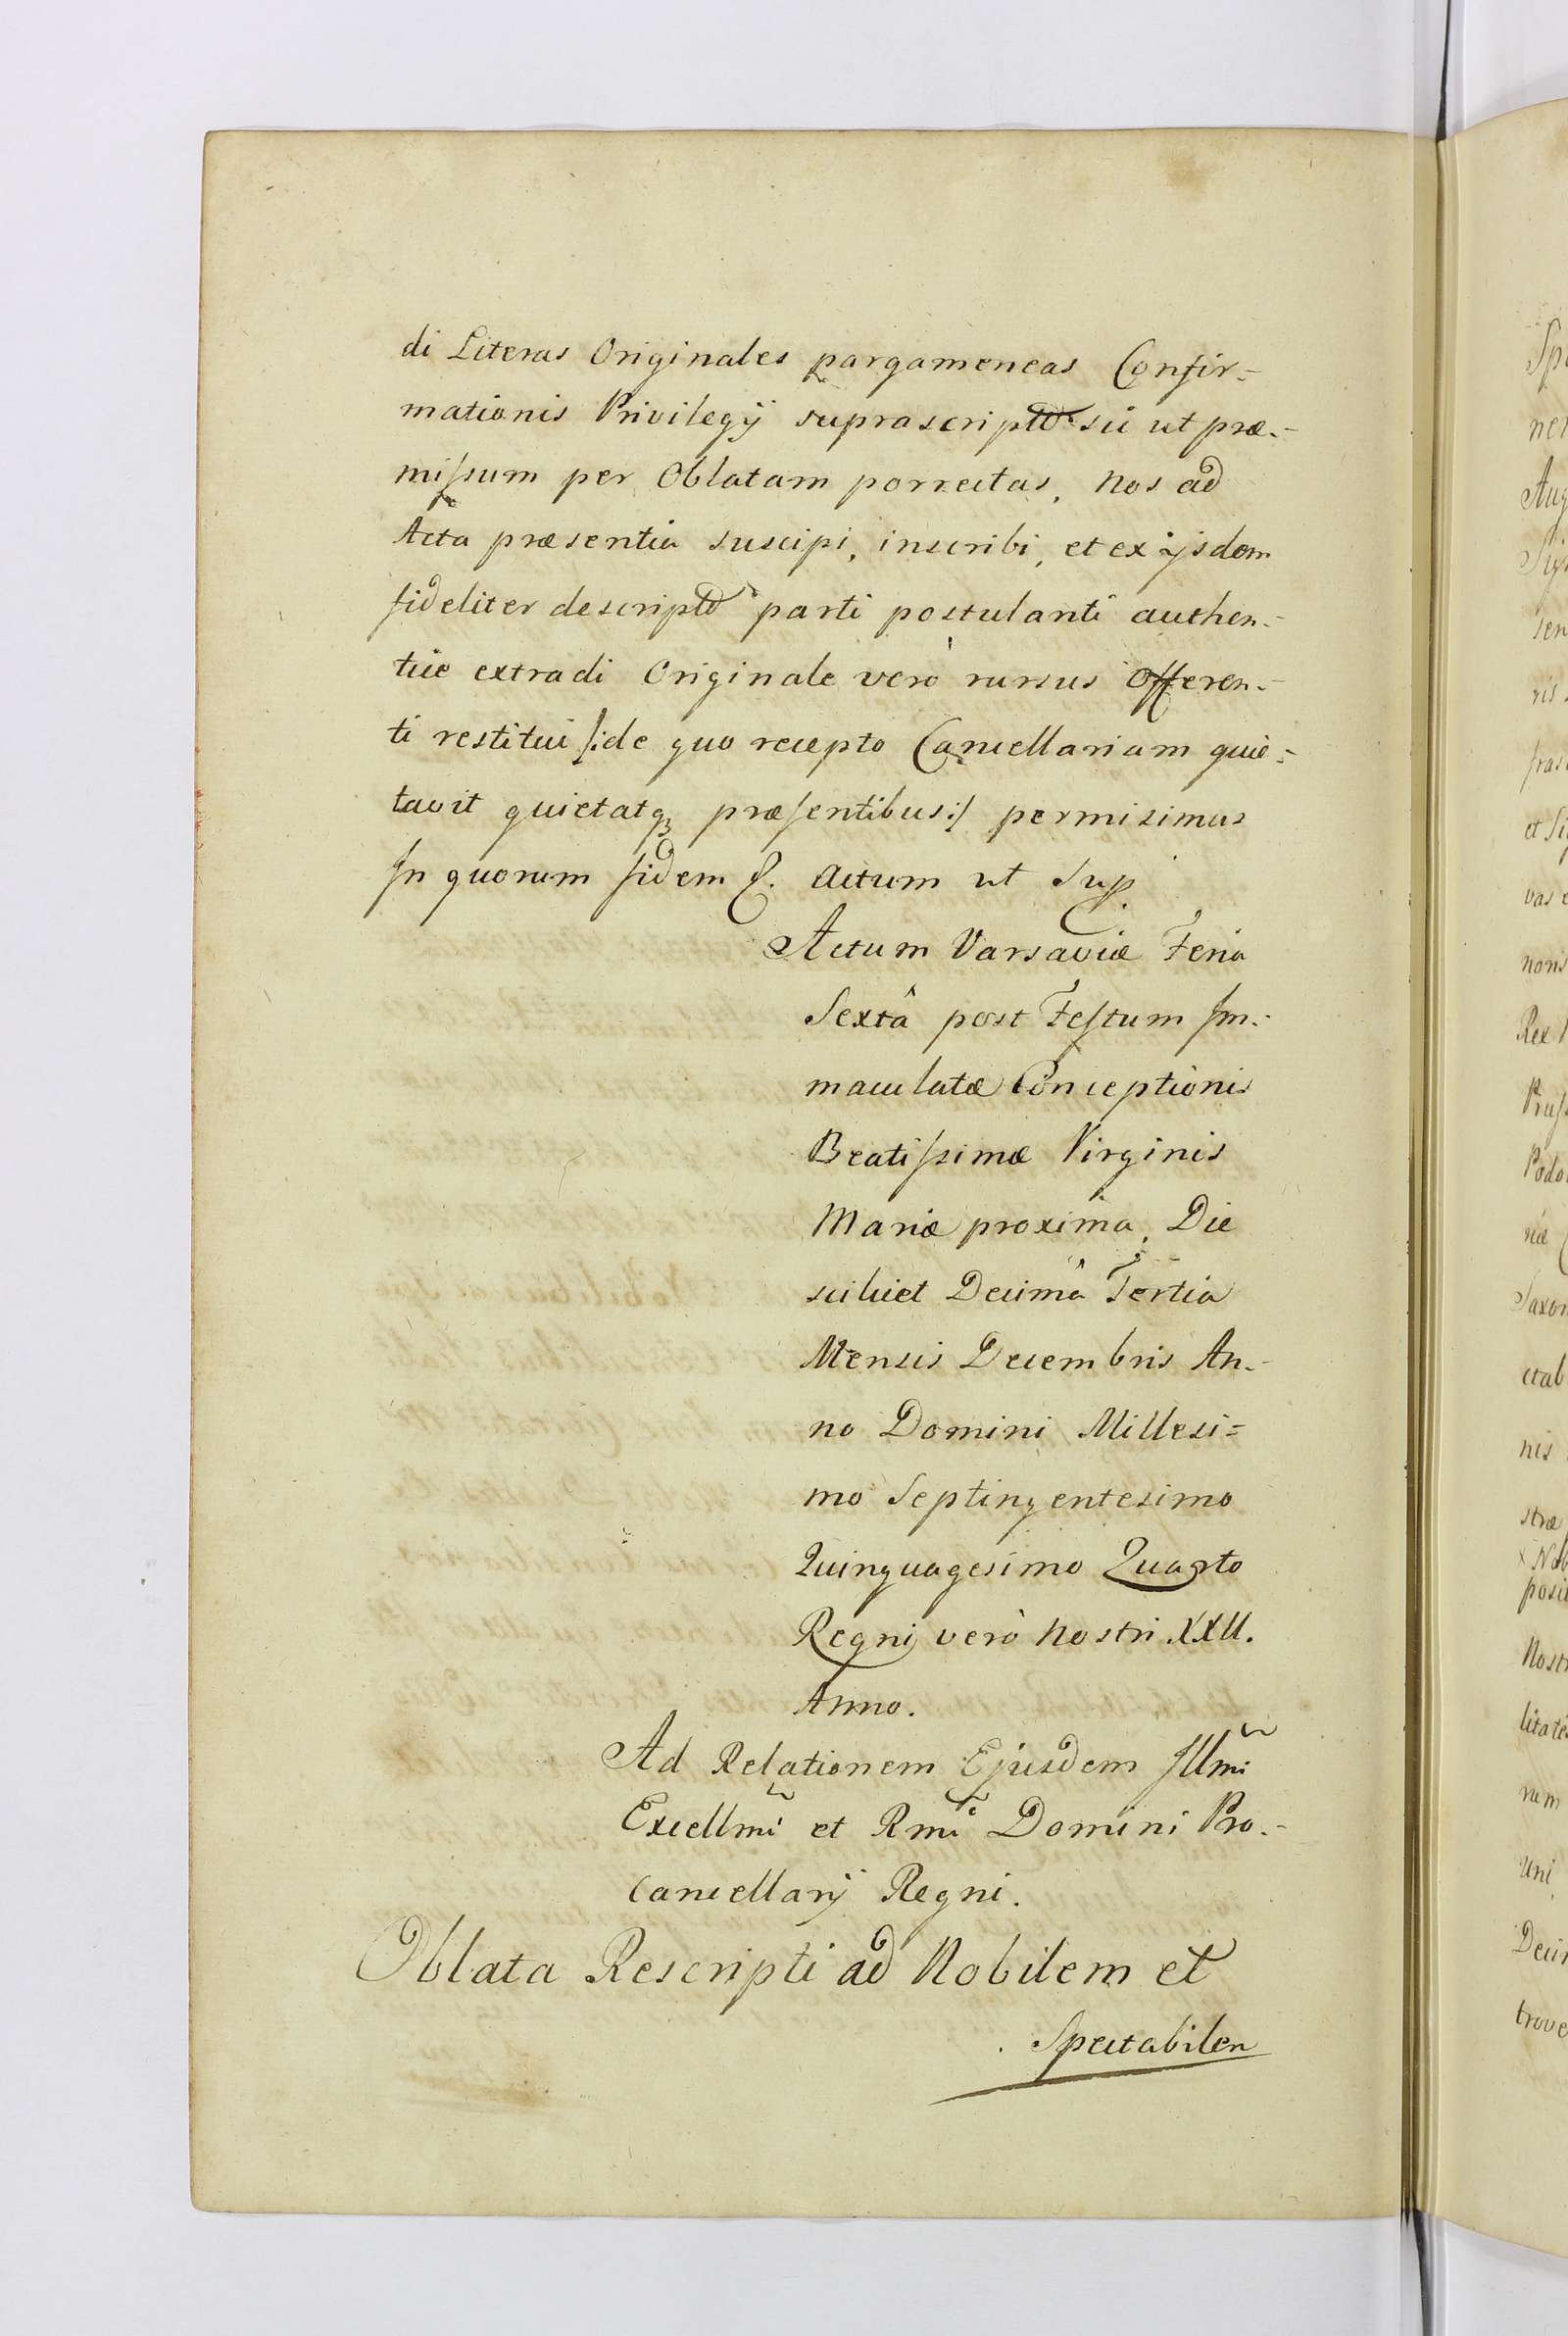 di Literas Originales pargameneas Confir=
mationis Privilegÿ suprascripto sic ut præ=
missum per Oblatam porrectas, Nos ad
Acta præsentia suscipi, inscribi, et ex ÿsdem
fideliter descripto parti postulanti authen=
tice extradi Originale verò rursus Offeren=
ti restitui /:de quo recepto Cancellariam quie=
tavit quietatq₃ præsentibus:/ permisimus
In quorum fidem &. Actum ut Sup.
Actum Varsaviæ Feria
Sextâ post Festum Im=
maculatæ Conceptionis
Beatissimæ Virginis
Mariæ proxima, Die
scilicet Decimâ Tertia
Mensis Decembris An=
no Domini Millesi=
mo Septingentesimo
Quinquagesimo Quarto
Regni verò Nostri XXII.
Anno.
Ad Relationem Ejusdem Illmi
Excellmi et Rmi Domini Pro=
cancellarÿ Regni.
Oblata Rescripti ad Nobilem et
Spectabilem